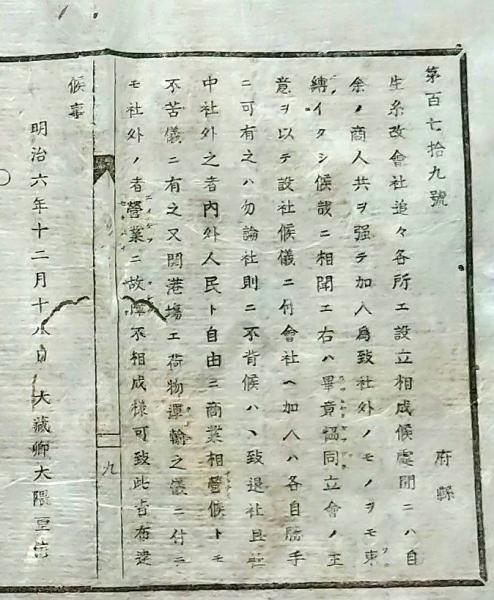 第百七拾九號
府縣
生糸改會社追々各所エ設立相成候處間ニハ自
余ノ商人共ヲ强テ加入為致社外ノモノヲモ束
縛イタシ候哉ニ相聞エ右ハ畢竟協同立會ノ主
意ヲ以テ設社候儀ニ付會社ヘ加入ハ各自勝手
ニ可有之ハ勿論社則ニ不背候ハヽ致退社且社
中社外之者內外人民ト自由ニ商業相營候トモ
不苦儀ニ有之又開港塲エ荷物運輸之儀ニ付テ
モ社外ノ者營業ニ故障不相成樣可致此旨布達
九
候事
明治六年十二月十八日 大藏卿大隈重信